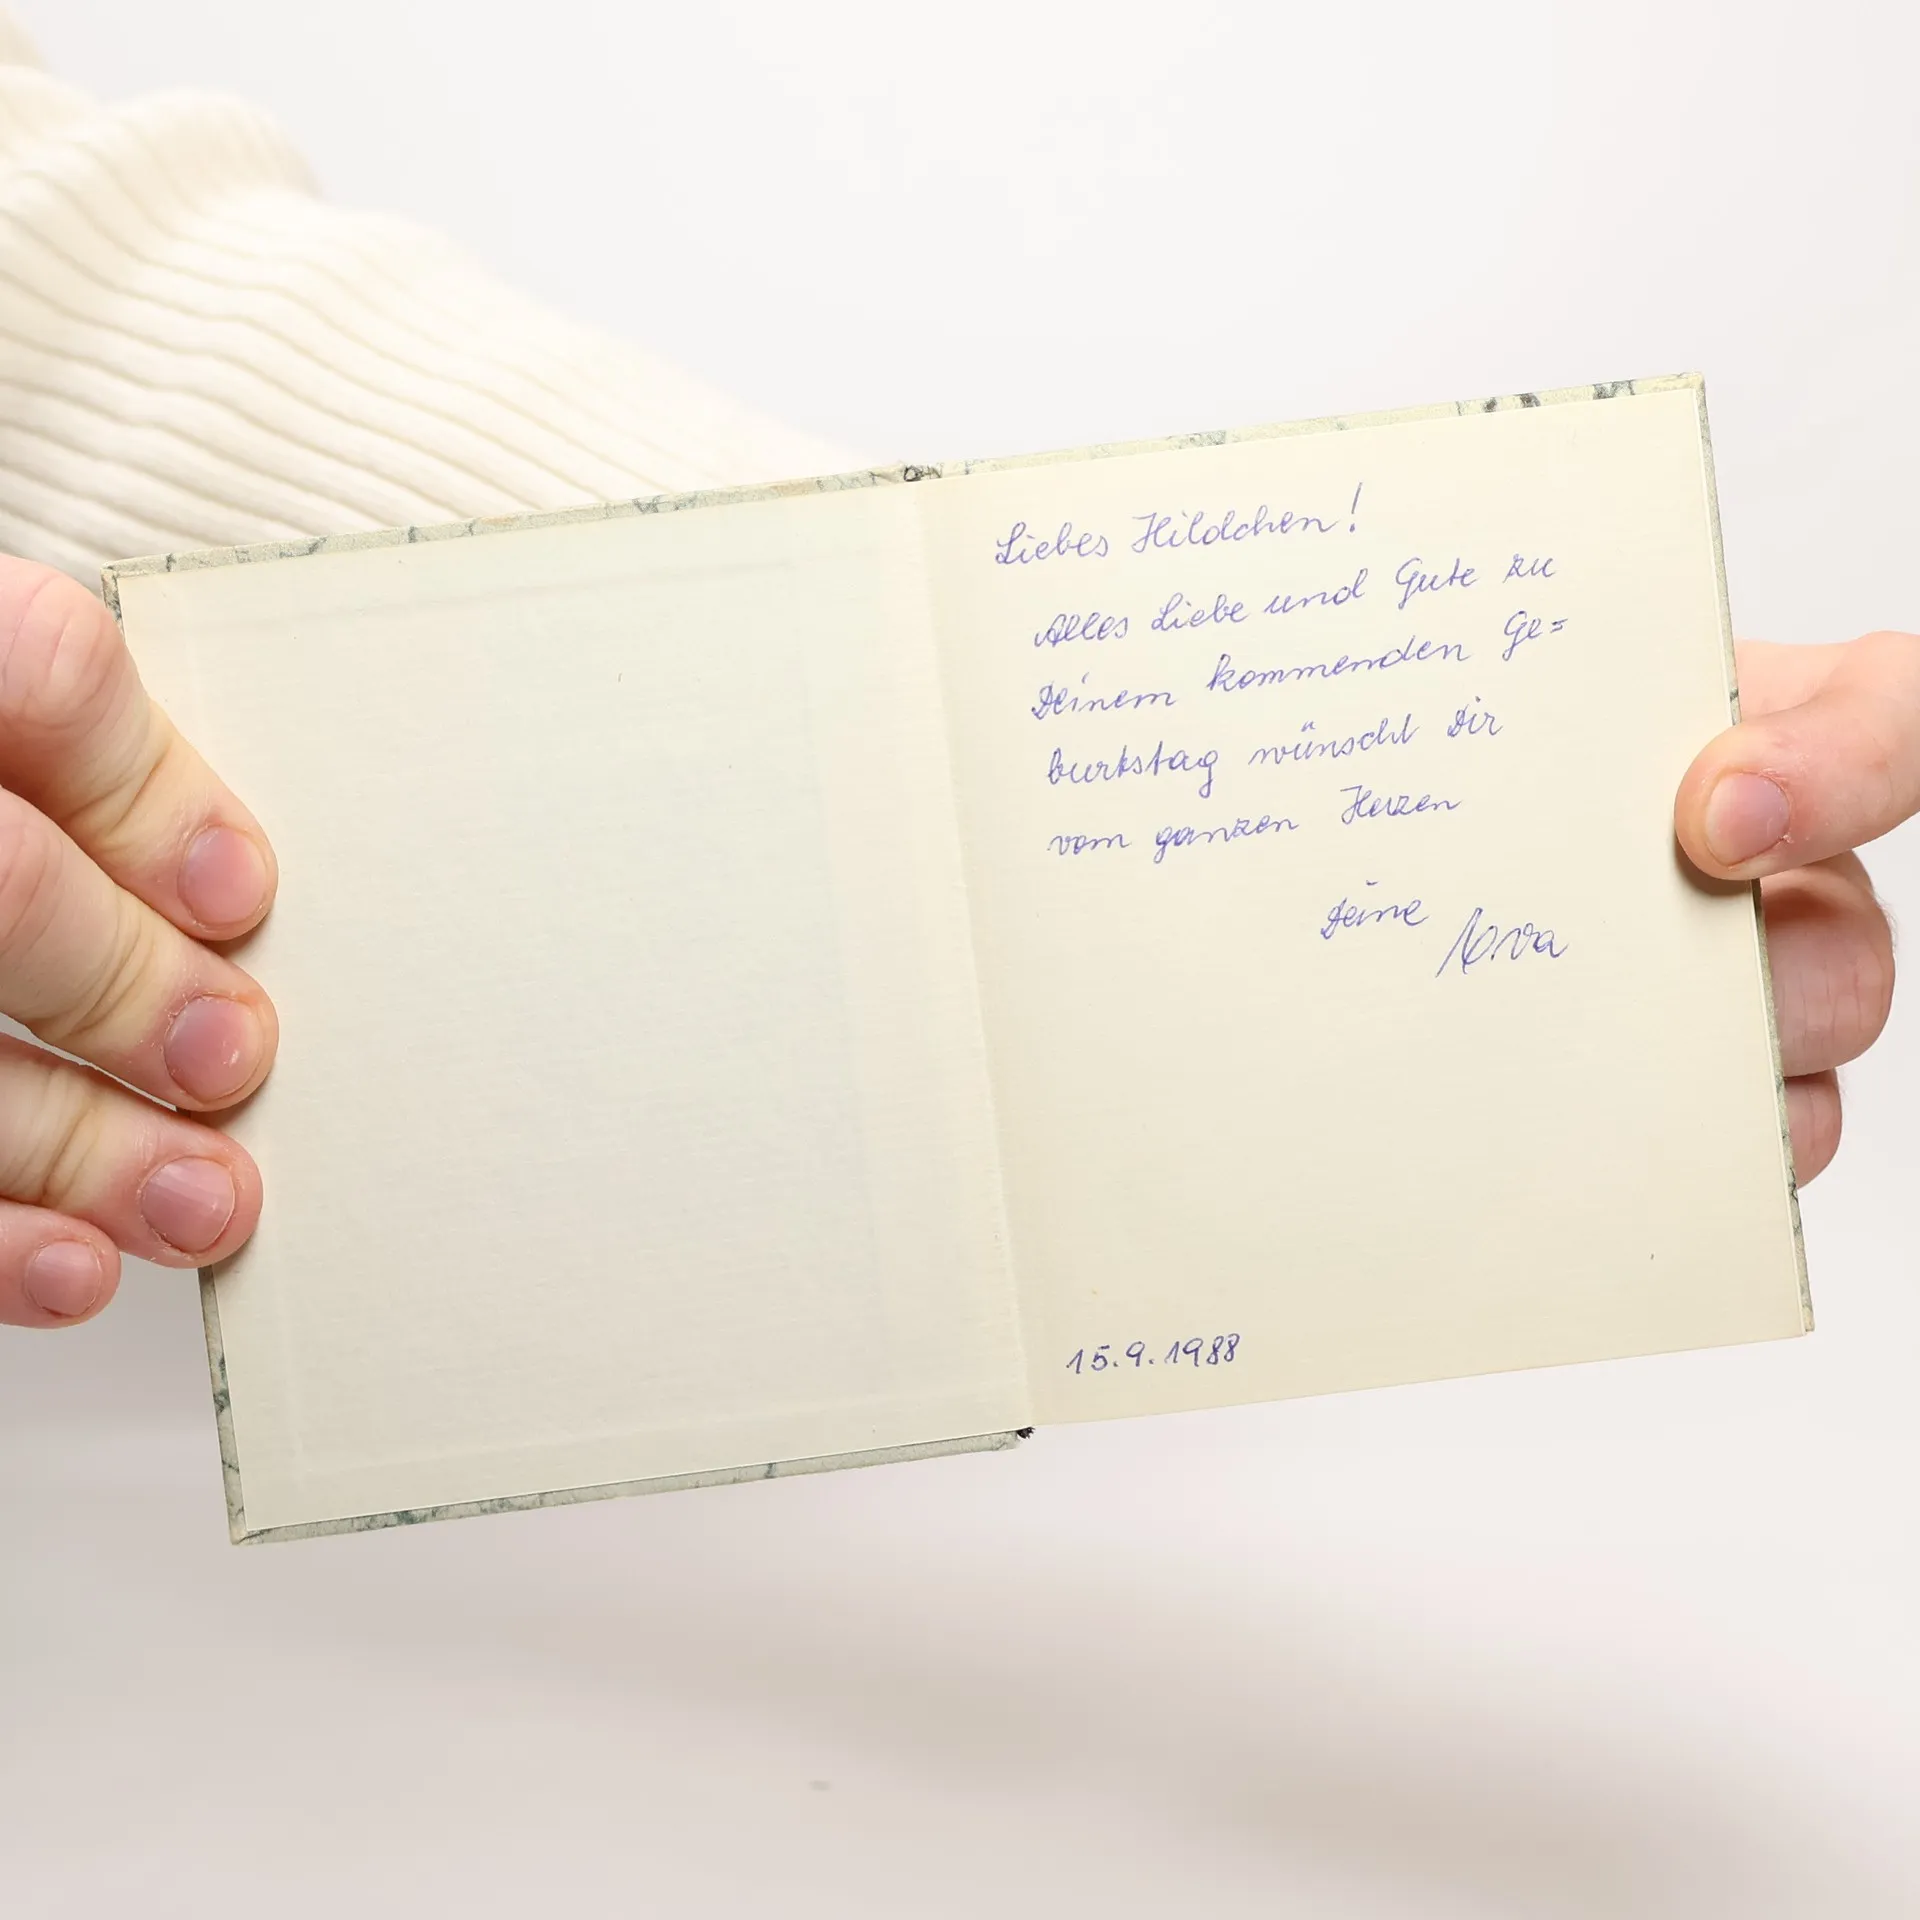 Liebes Hildchen!
Alles Liebe und Gute zu
Deinem kommenden Ge=
burtstag wünscht Dir
vom ganzen Herzen
Deine
15.9.1988